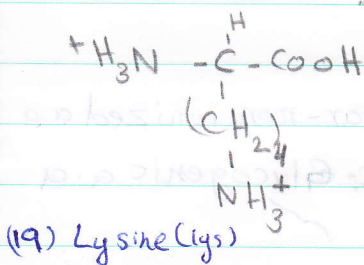 H
+H3N - C - COOH
(CH2)4
NH3+
(19) Lysine (lys)